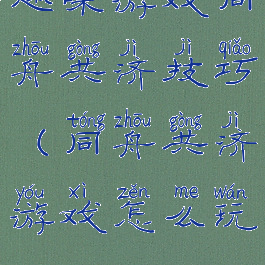 游戏同
zhōu gòng jì jì qiǎo
舟共济技巧
tóng zhōu gòng jì
(同舟共济
yóu xì zěn me wán
游戏怎么玩